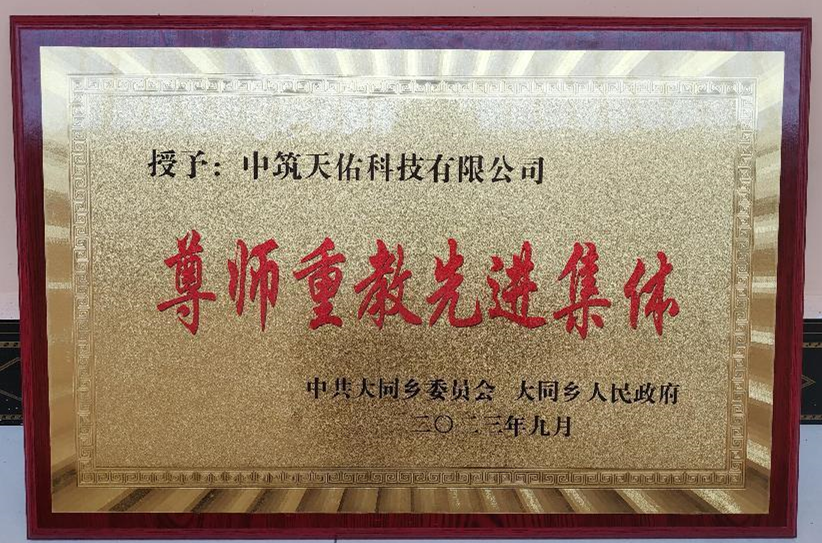 授予：中筑天佑科技有限公司
尊师重教先进集体
中共大同乡委员会 大同乡人民政府
二〇二三年九月